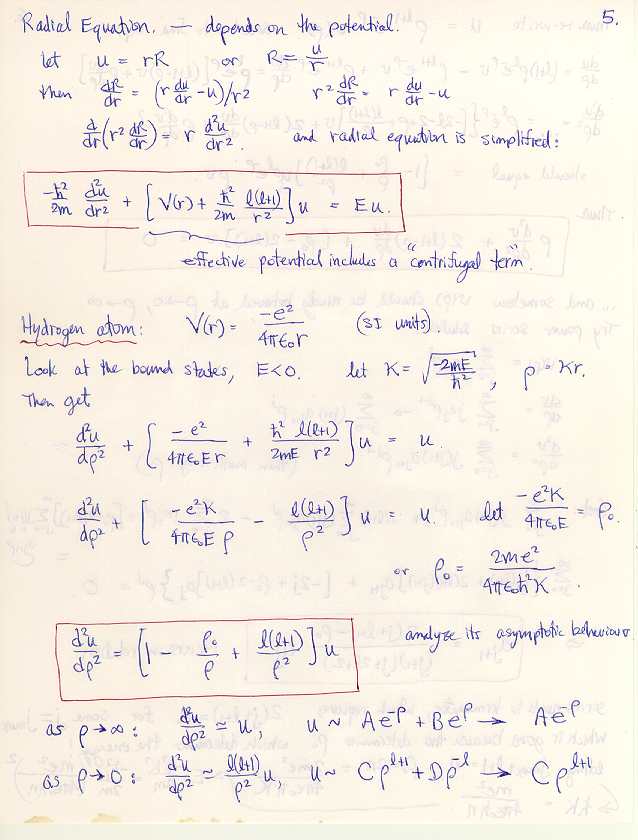 5.
Radial Equation. — depends on the potential.
let u = rR or R = u/r
then dR/dr = (r du/dr - u)/r² r² dR/dr = r du/dr - u
d/dr(r² dR/dr) = r d²u/dr². and radial equation is simplified:
-ħ²/2m d²u/dr² + [V(r) + ħ²/2m l(l+1)/r²]u = Eu.
effective potential includes a "centrifugal term".
Hydrogen atom: V(r) = -e²/4πε₀r (SI units).
Look at the bound states, E<0. let K = √(-2mE/ħ²), ρ = Kr.
Then get
d²u/dρ² + [-e²/4πε₀Er + ħ²/2mE l(l+1)/r²]u = u.
d²u/dρ² + [-e²K/4πε₀Eρ - l(l+1)/ρ²]u = u. let -e²K/4πε₀E = ρ₀.
or ρ₀ = 2me²/4πε₀ħ²K.
d²u/dρ² = [1 - ρ₀/ρ + l(l+1)/ρ²]u analyze its asymptotic behaviour
as ρ→∞: d²u/dρ² ≃ u, u ~ Ae^-ρ + Be^ρ → Ae^-ρ
as ρ→0: d²u/dρ² ≃ l(l+1)/ρ² u, u ~ Cρ^l+1 + Dρ^-l → Cρ^l+1